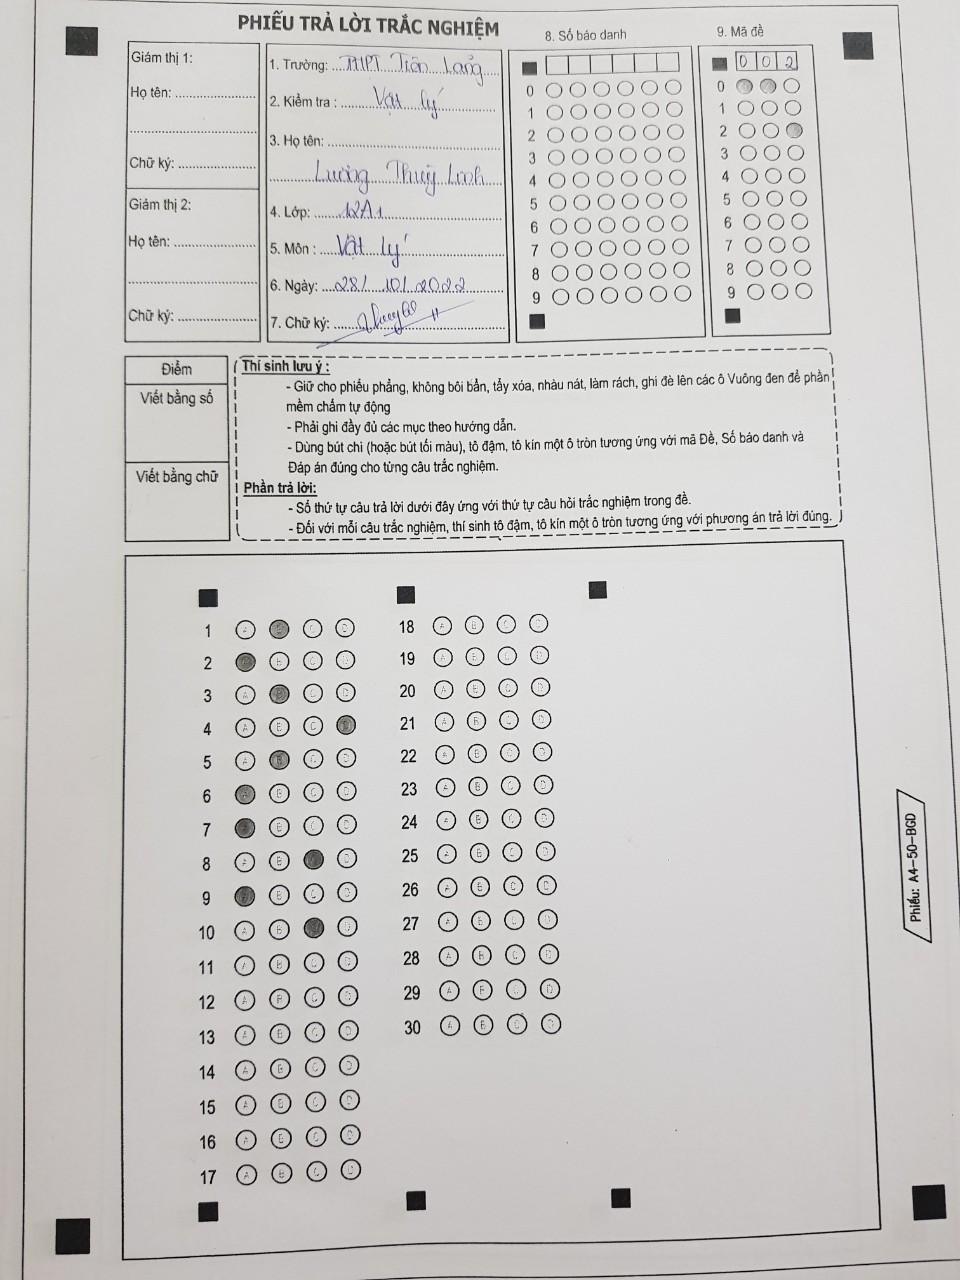 PHIẾU TRẢ LỜI TRẮC NGHIỆM
Giám thị 1:
Họ tên:
Chữ ký:
Giám thị 2:
Họ tên:
Chữ ký:
1. Trường: THPT Tiên Lãng
2. Kiểm tra : Vật lý
3. Họ tên:
Lương Thuỳ Linh
4. Lớp: 12A1
5. Môn : Vật lý
6. Ngày: 28/ 10/ 2022
7. Chữ ký:
8. Số báo danh
0
1
2
3
4
5
6
7
8
9
9. Mã đề
0 0 2
0
1
2
3
4
5
6
7
8
9
Điểm
Viết bằng số
Viết bằng chữ
Thí sinh lưu ý :
- Giữ cho phiếu phẳng, không bôi bẩn, tẩy xóa, nhàu nát, làm rách, ghi đè lên các ô Vuông đen để phần
mềm chấm tự động
- Phải ghi đầy đủ các mục theo hướng dẫn.
- Dùng bút chì (hoặc bút tối màu), tô đậm, tô kín một ô tròn tương ứng với mã Đề, Số báo danh và
Đáp án đúng cho từng câu trắc nghiệm.
Phần trả lời:
- Số thứ tự câu trả lời dưới đây ứng với thứ tự câu hỏi trắc nghiệm trong đề.
- Đối với mỗi câu trắc nghiệm, thí sinh tô đậm, tô kín một ô tròn tương ứng với phương án trả lời đúng.
1 A B C D
2 A B C D
3 A B C D
4 A B C D
5 A B C D
6 A B C D
7 A B C D
8 A B C D
9 A B C D
10 A B C D
11 A B C D
12 A B C D
13 A B C D
14 A B C D
15 A B C D
16 A B C D
17 A B C D
18 A B C D
19 A B C D
20 A B C D
21 A B C D
22 A B C D
23 A B C D
24 A B C D
25 A B C D
26 A B C D
27 A B C D
28 A B C D
29 A B C D
30 A B C D
Phiếu: A4-50-BGD